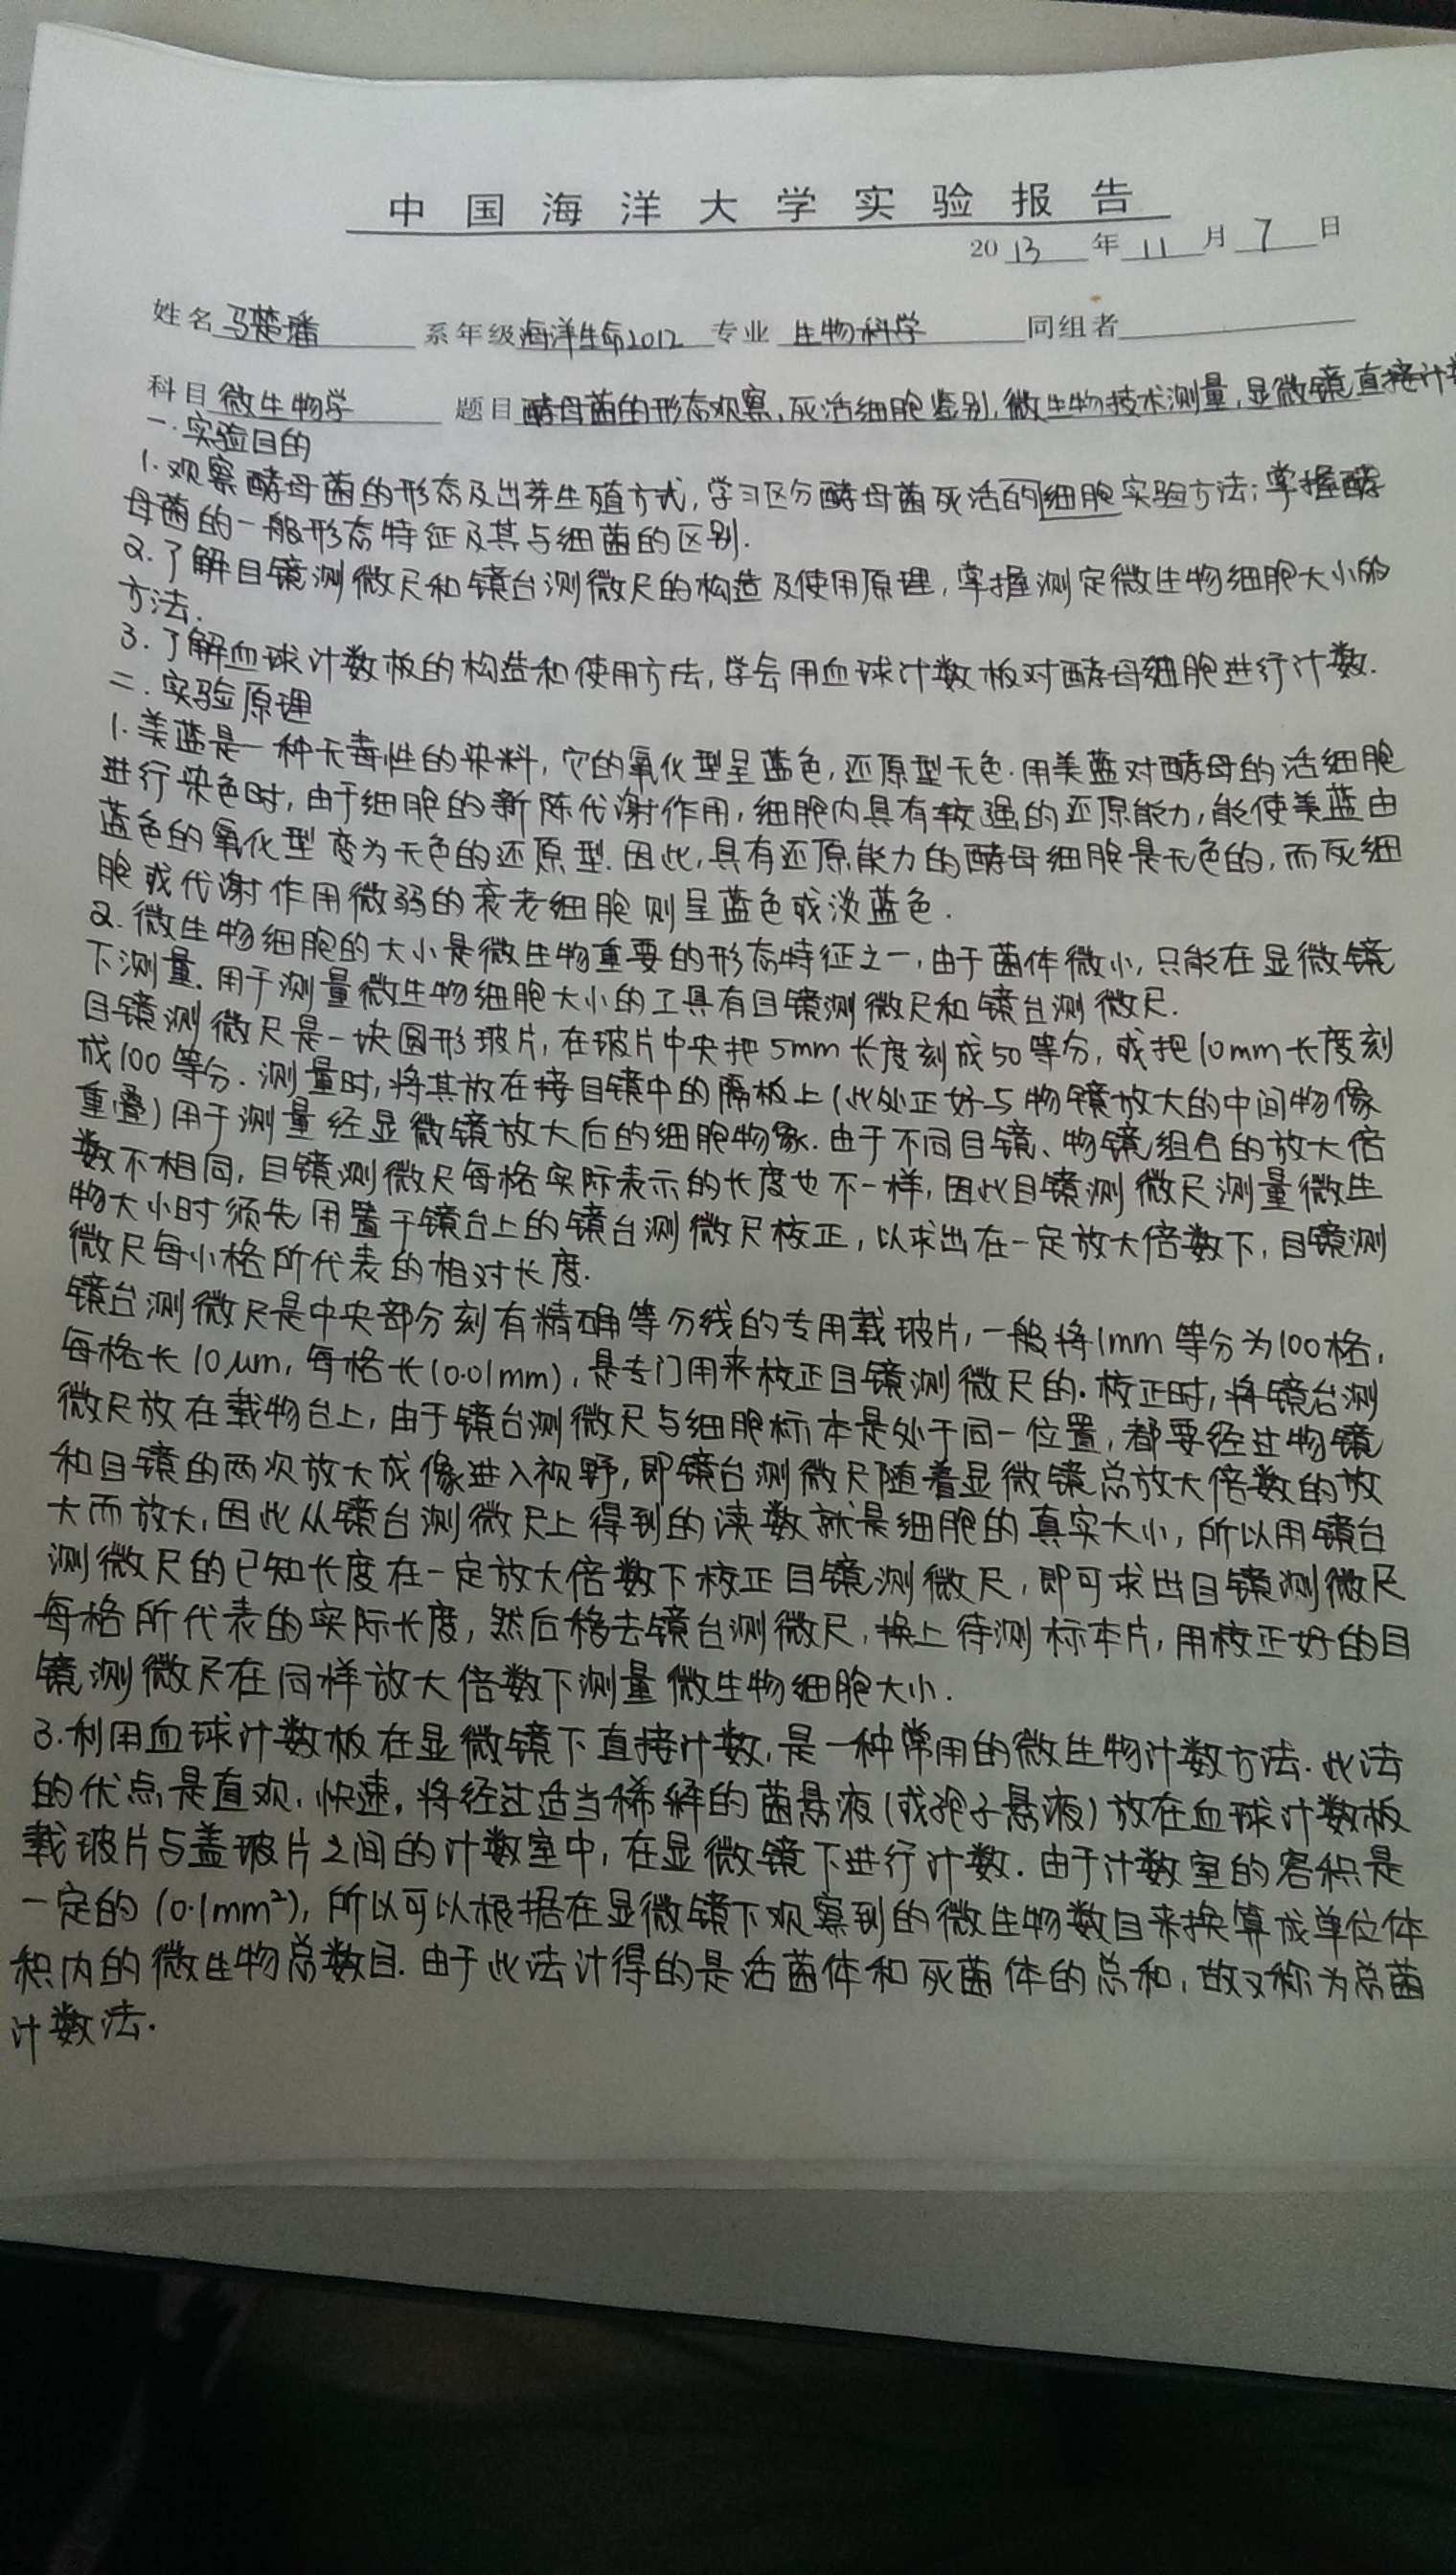 中国海洋大学实验报告
2013年11月7日
姓名 马楚璠 系年级 海洋生命2012 专业 生物科学 同组者
科目 微生物学 题目 酵母菌的形态观察,死活细胞鉴别,微生物技术测量,显微镜直接计数
一.实验目的
1.观察酵母菌的形态及出芽生殖方式,学习区分酵母菌死活的细胞实验方法;掌握酵
母菌的一般形态特征及其与细菌的区别.
2.了解目镜测微尺和镜台测微尺的构造及使用原理,掌握测定微生物细胞大小的
方法.
3.了解血球计数板的构造和使用方法,学会用血球计数板对酵母细胞进行计数.
二.实验原理
1.美蓝是一种无毒性的染料,它的氧化型呈蓝色,还原型无色.用美蓝对酵母的活细胞
进行染色时,由于细胞的新陈代谢作用,细胞内具有较强的还原能力,能使美蓝由
蓝色的氧化型变为无色的还原型.因此,具有还原能力的酵母细胞是无色的,而死细
胞或代谢作用微弱的衰老细胞则呈蓝色或淡蓝色.
2.微生物细胞的大小是微生物重要的形态特征之一,由于菌体微小,只能在显微镜
下测量.用于测量微生物细胞大小的工具有目镜测微尺和镜台测微尺.
目镜测微尺是一块圆形玻片,在玻片中央把5mm长度刻成50等分,或把10mm长度刻
成100等分.测量时,将其放在接目镜中的隔板上(此处正好与物镜放大的中间物像
重叠)用于测量经显微镜放大后的细胞物象.由于不同目镜、物镜组合的放大倍
数不相同,目镜测微尺每格实际表示的长度也不一样,因此目镜测微尺测量微生
物大小时须先用置于镜台上的镜台测微尺校正,以求出在一定放大倍数下,目镜测
微尺每小格所代表的相对长度.
镜台测微尺是中央部分刻有精确等分线的专用载玻片,一般将1mm等分为100格,
每格长10μm,每格长(0.01mm),是专门用来校正目镜测微尺的.校正时,将镜台测
微尺放在载物台上,由于镜台测微尺与细胞标本是处于同一位置,都要经过物镜
和目镜的两次放大成像进入视野,即镜台测微尺随着显微镜总放大倍数的放
大而放大,因此从镜台测微尺上得到的读数就是细胞的真实大小,所以用镜台
测微尺的已知长度在一定放大倍数下校正目镜测微尺,即可求出目镜测微尺
每格所代表的实际长度,然后移去镜台测微尺,换上待测标本片,用校正好的目
镜测微尺在同样放大倍数下测量微生物细胞大小.
3.利用血球计数板在显微镜下直接计数,是一种常用的微生物计数方法.此法
的优点是直观、快速,将经过适当稀释的菌悬液(或孢子悬液)放在血球计数板
载玻片与盖玻片之间的计数室中,在显微镜下进行计数.由于计数室的容积是
一定的(0.1mm²),所以可以根据在显微镜下观察到的微生物数目来换算成单位体
积内的微生物总数目.由于此法计得的是活菌体和死菌体的总和,故又称为总菌
计数法.